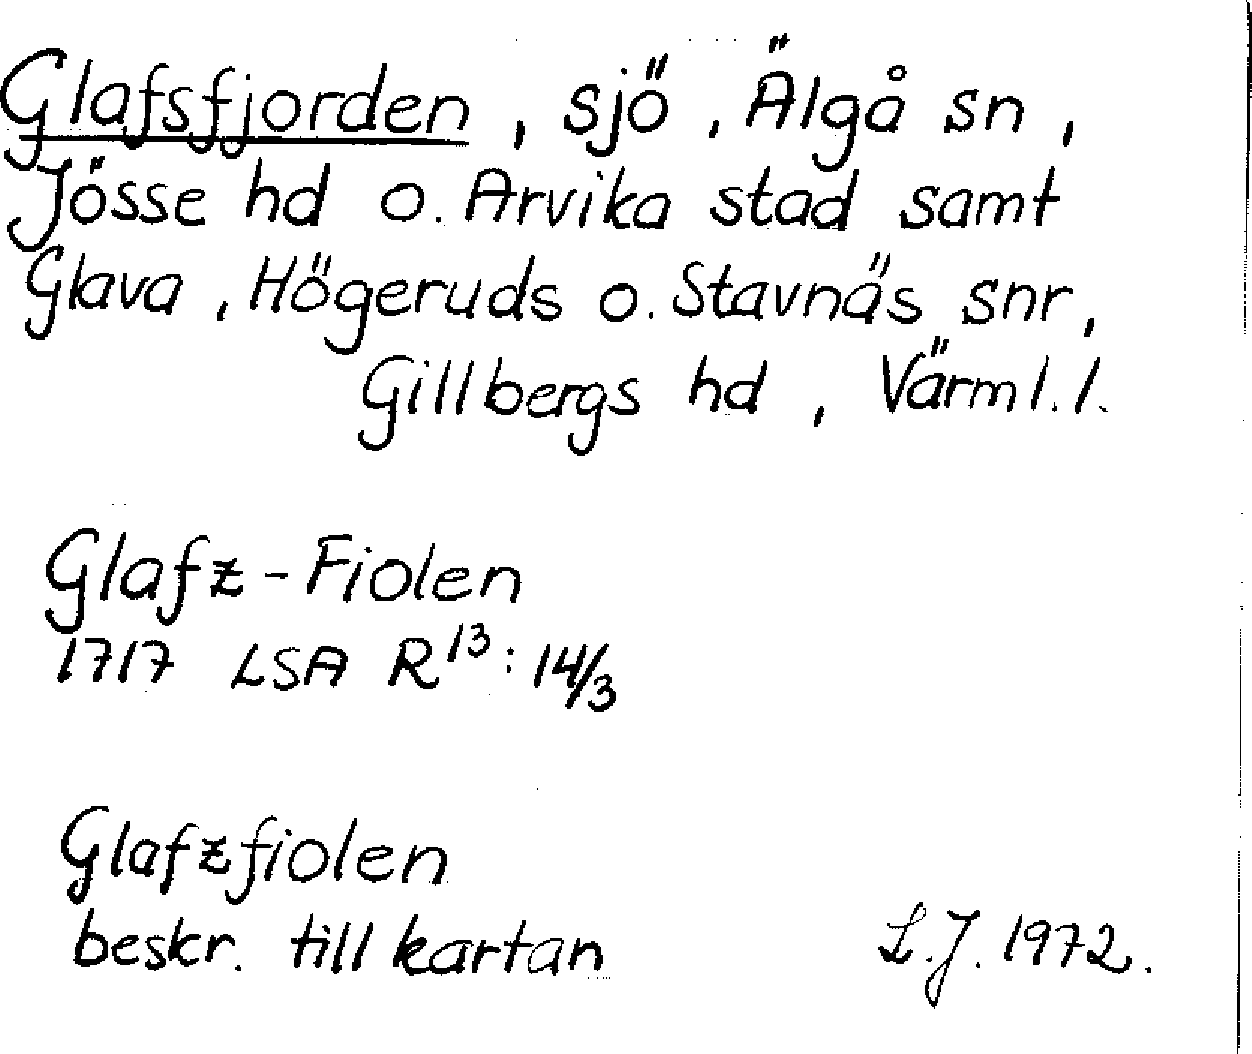 Glafsfjorden, sjö, Älgå sn,
Jösse hd o. Arvika stad samt
Glava, Högeruds o. Stavnäs snr,
Gillbergs hd, Värml. l.
Glafz-Fiolen
1717 LSA R¹³: 14/3
Glafzfiolen
beskr. till kartan L.J. 1972.